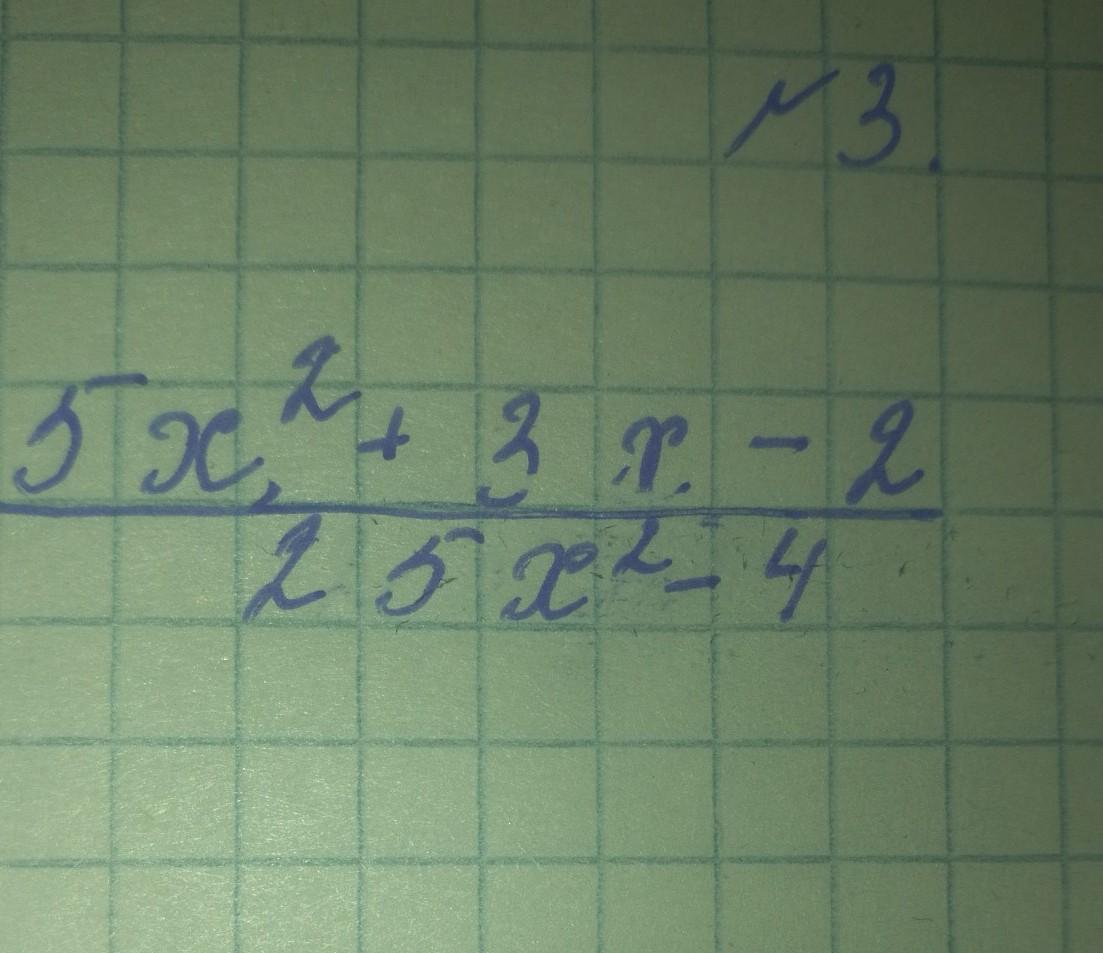 №3.
5x² + 3x - 2
25x² - 4